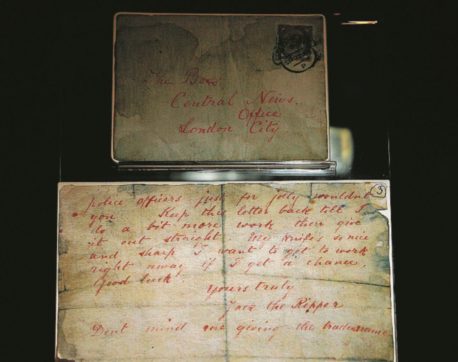 The Boss
Central News
Office
London City
3
police officers just for jolly wouldnt
you. Keep this letter back till I
do a bit more work, then give
it out straight. My knife's so nice
and sharp I want to get to work
right away if I get a chance.
Good luck
yours truly
Jack the Ripper
Dont mind me giving the trade name